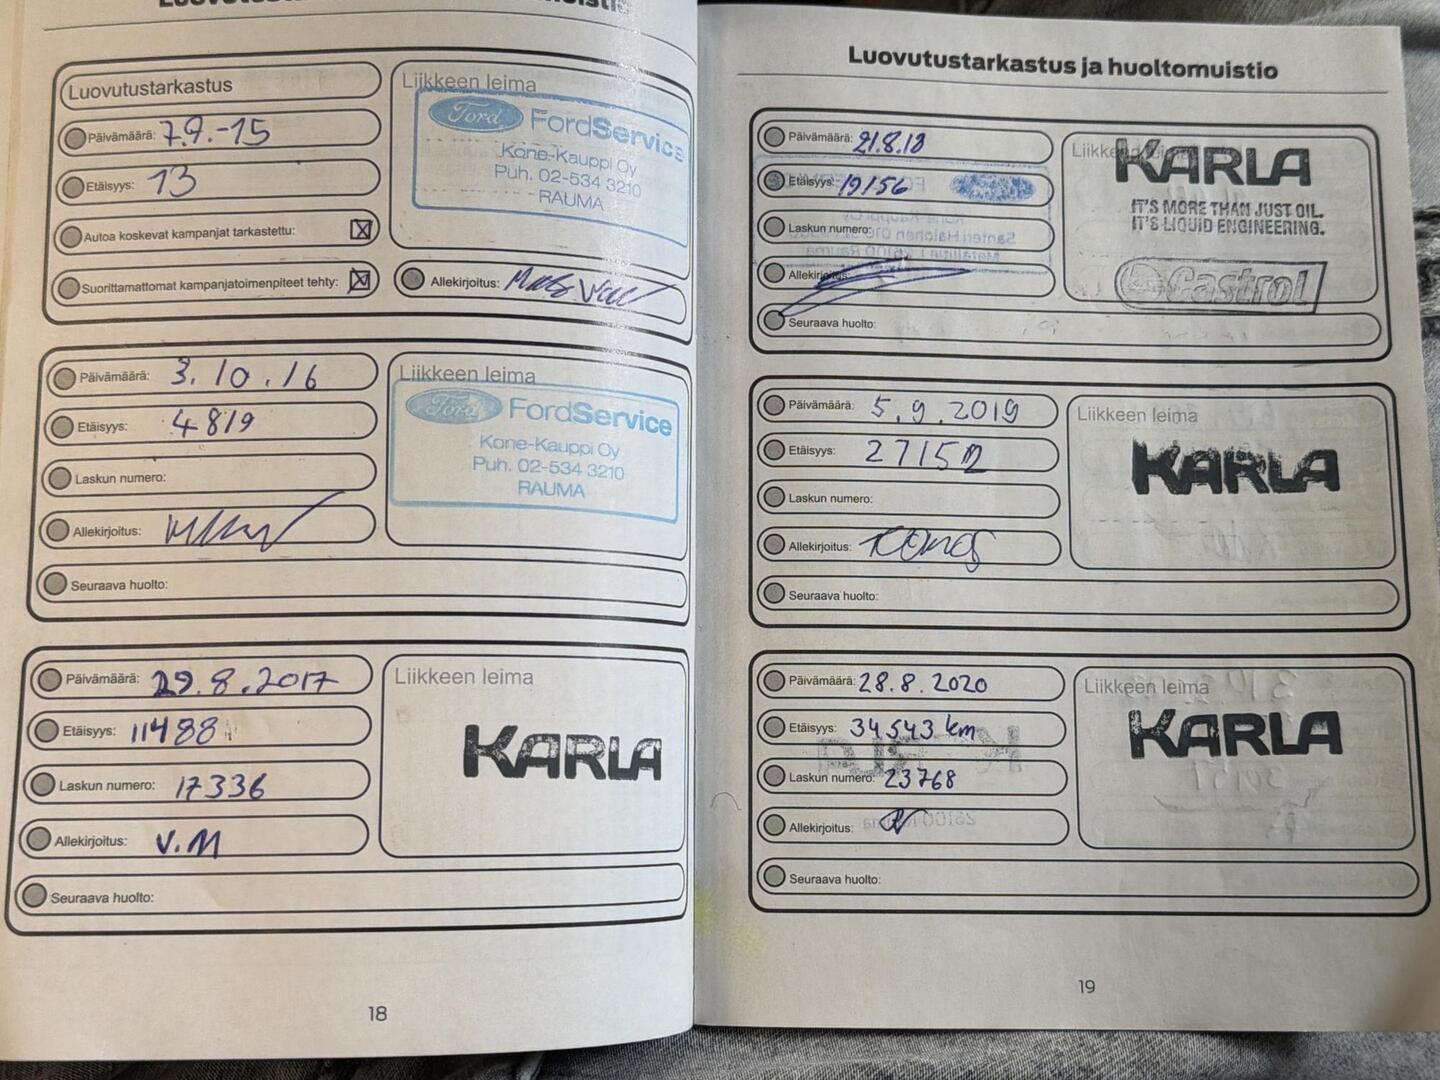 Luovutustarkastus
Päivämäärä: 7.9.-15
Etäisyys: 13
Autoa koskevat kampanjat tarkastettu: ☒
Suorittamattomat kampanjatoimenpiteet tehty: ☒
Liikkeen leima
Ford FordService
Kone-Kauppi Oy
Puh. 02-534 3210
RAUMA
Allekirjoitus:
Päivämäärä: 3.10.16
Etäisyys: 4819
Laskun numero:
Allekirjoitus:
Seuraava huolto:
Liikkeen leima
Ford FordService
Kone-Kauppi Oy
Puh. 02-534 3210
RAUMA
Päivämäärä: 29.8.2017
Etäisyys: 11488
Laskun numero: 17336
Allekirjoitus: V.M
Seuraava huolto:
Liikkeen leima
KARLA
18
Luovutustarkastus ja huoltomuistio
Päivämäärä: 21.8.18
Etäisyys: 19156
Laskun numero:
Allekirjoitus:
Seuraava huolto:
Liikkeen leima
KARLA
IT'S MORE THAN JUST OIL.
IT'S LIQUID ENGINEERING.
Castrol
Päivämäärä: 5.9.2019
Etäisyys: 27152
Laskun numero:
Allekirjoitus:
Seuraava huolto:
Liikkeen leima
KARLA
Päivämäärä: 28.8.2020
Etäisyys: 34543 km
Laskun numero: 23768
Allekirjoitus:
Seuraava huolto:
Liikkeen leima
KARLA
19